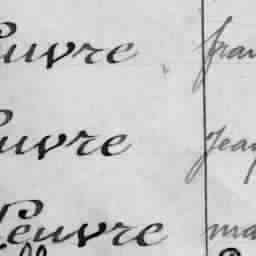 euvre fran
euvre Jean
Leuvre ma